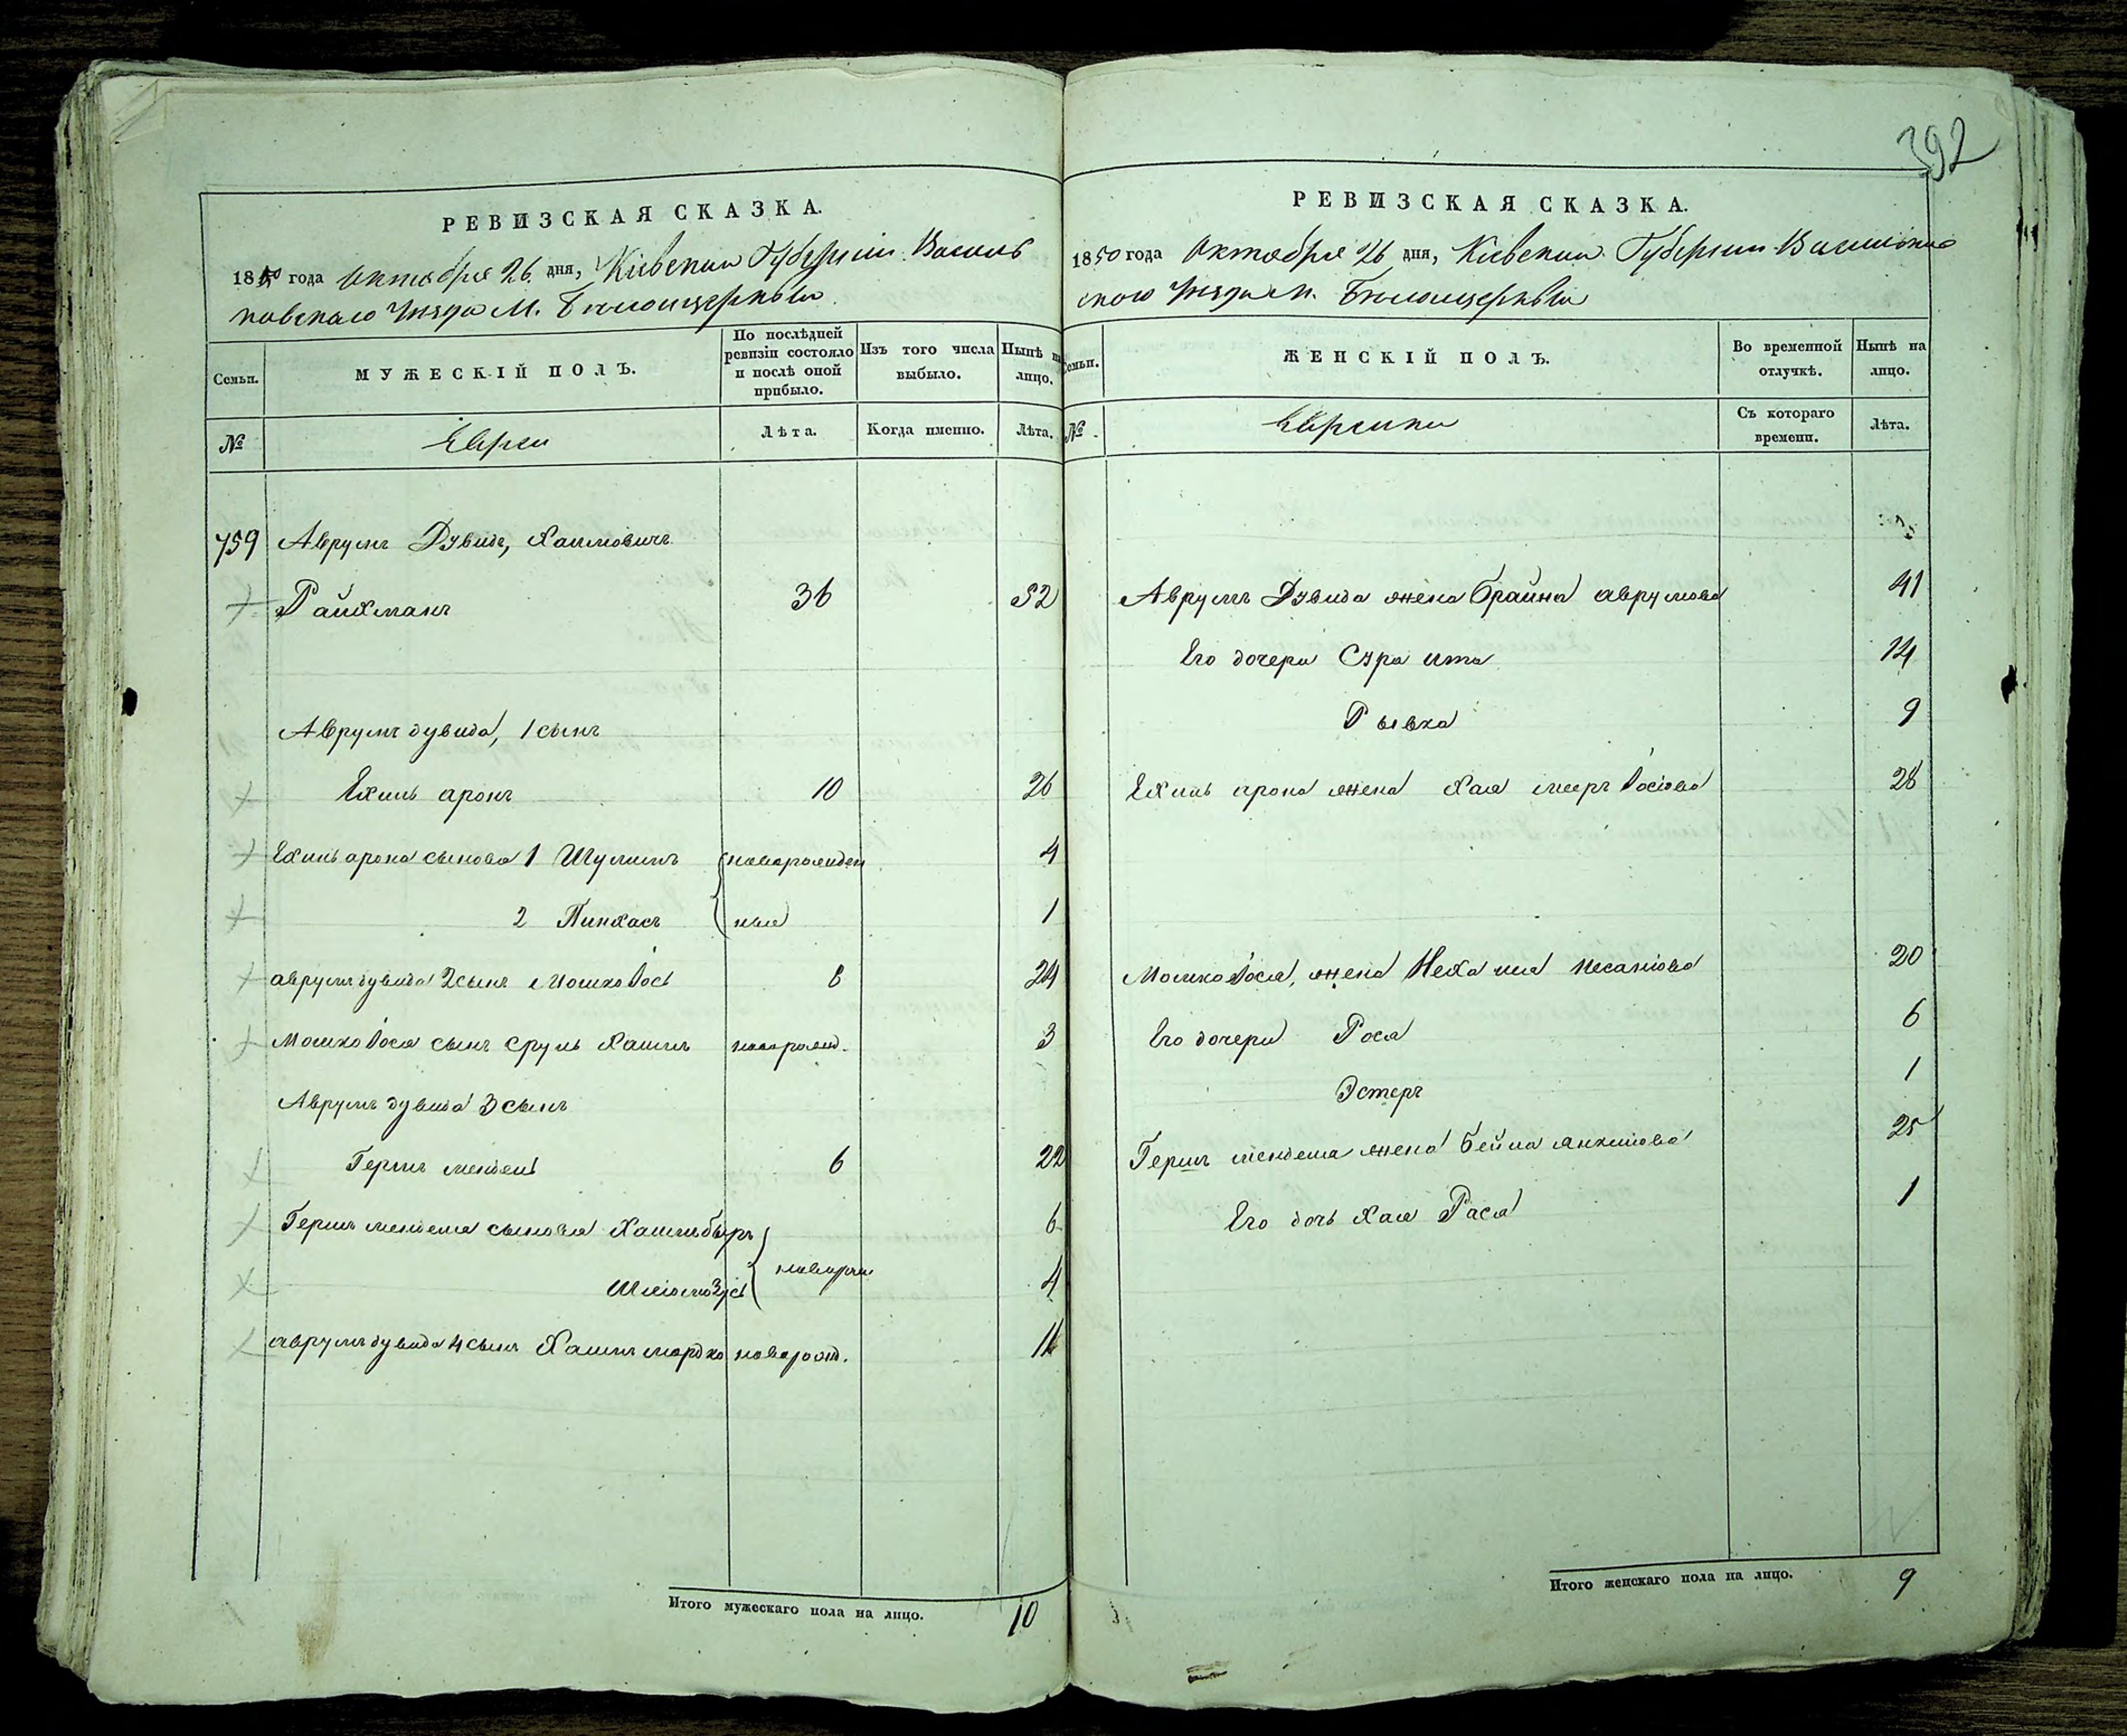 392
РЕВИЗСКАЯ СКАЗКА.
1850 года Октября 26 дня, Кіевской Губерніи Василь
ковскаго Уѣзда М. Бѣлоцерквы
Семьи.
МУЖЕСКІЙ ПОЛЪ.
По послѣдней ревизіи состояло и послѣ оной прибыло.
Изъ того числа выбыло.
Нынѣ на лицо.
№
Евреи
Лѣта.
Когда именно.
Лѣта.
759 Аврумъ Дувидъ, Хаимовичъ
Райхманъ 36 52
Аврумъ дувида, 1 сынъ
Ехиль аронъ 10 26
Ехиль арона сыновья 1 Шулимъ новорожден 4
2 Пинхасъ ные 1
аврумъ дувида 2 сынъ Мошко Іось 8 24
Мошко Іося сынъ Сруль Хаимъ новорожд. 3
Аврумъ дувида 3 сынъ
Гершъ мендель 6 22
Гершъ менделя сыновья Хаимъ беръ 6
Шліомо Зусь новорож 4
аврумъ дувида 4 сынъ Хаимъ мордко новорожд. 11
Итого мужескаго пола на лицо. 10
РЕВИЗСКАЯ СКАЗКА.
1850 года Октября 26 дня, Кіевской Губерніи Васильков
скаго Уѣзда М. Бѣлоцерквы
Семьи.
ЖЕНСКІЙ ПОЛЪ.
Во временной отлучкѣ.
Нынѣ на лицо.
№
Еврейки
Съ котораго времени.
Лѣта.
Аврумъ Дувида жена Брайна аврумова 41
Его дочери Сура ита 14
Рывка 9
Ехиль арона жена Хая мееръ Іосіова 28
Мошко Іося, жена Неха 20
Его дочери Рося 6
Эстеръ 1
Гершъ менделя жена Бейла янкелiова 25
Его дочь Хая Рася 1
Итого женскаго пола на лицо. 9